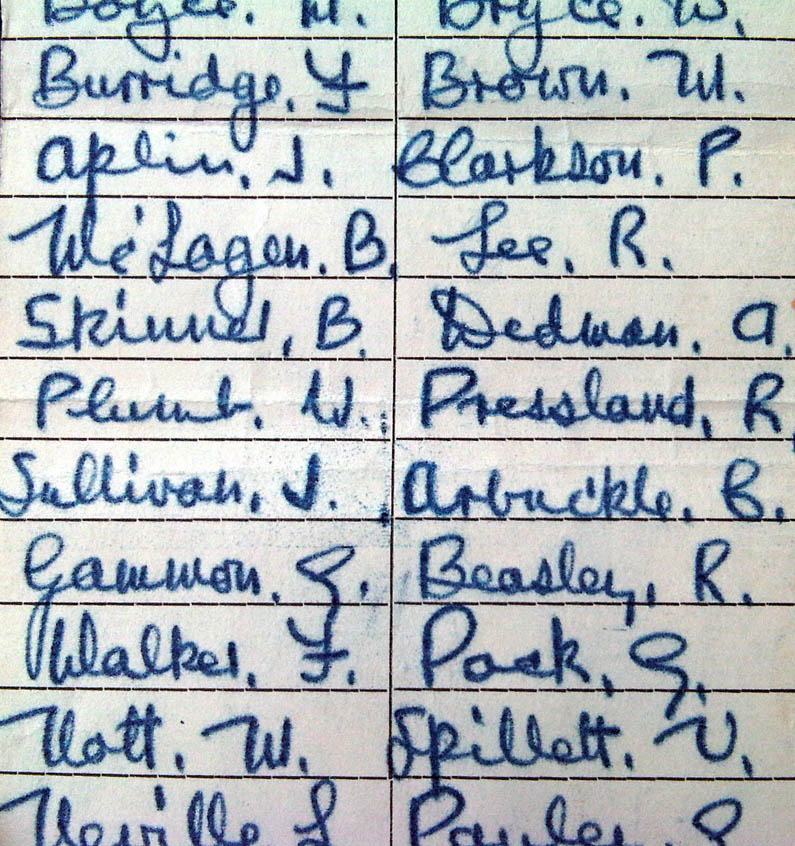 Bryce. W.
Burridge. F Brown. W.
Aplin. J. Clarkson. P.
McLagen. B. Lee. R.
Skinner, B. Dedman. A.
Plumb. W. Pressland, R.
Sullivan. J. Arbuckle. B.
Gammon. G. Beasley, R.
Walker. F. G.
Nott. W. Spillett. V.
Neville L